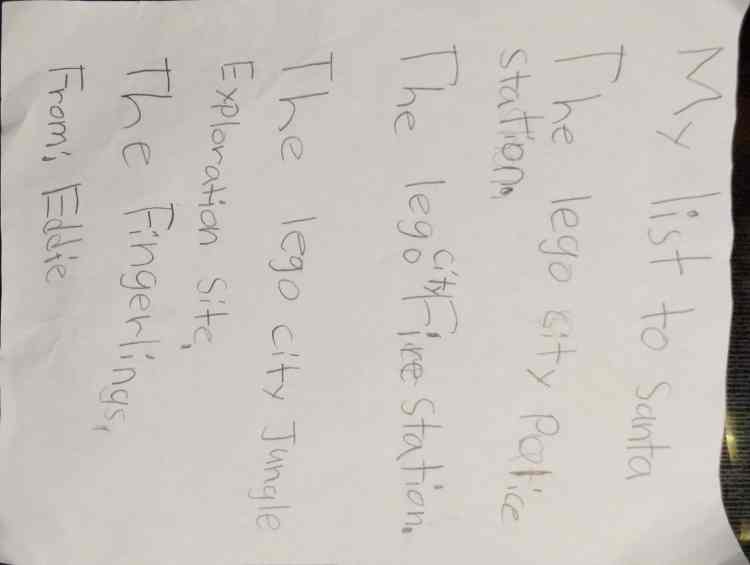 My list to Santa
The lego city Police
station.
The lego city Fire Station.
The lego city Jungle
Exploration Site,
The Fingerlings,
From; Eddie